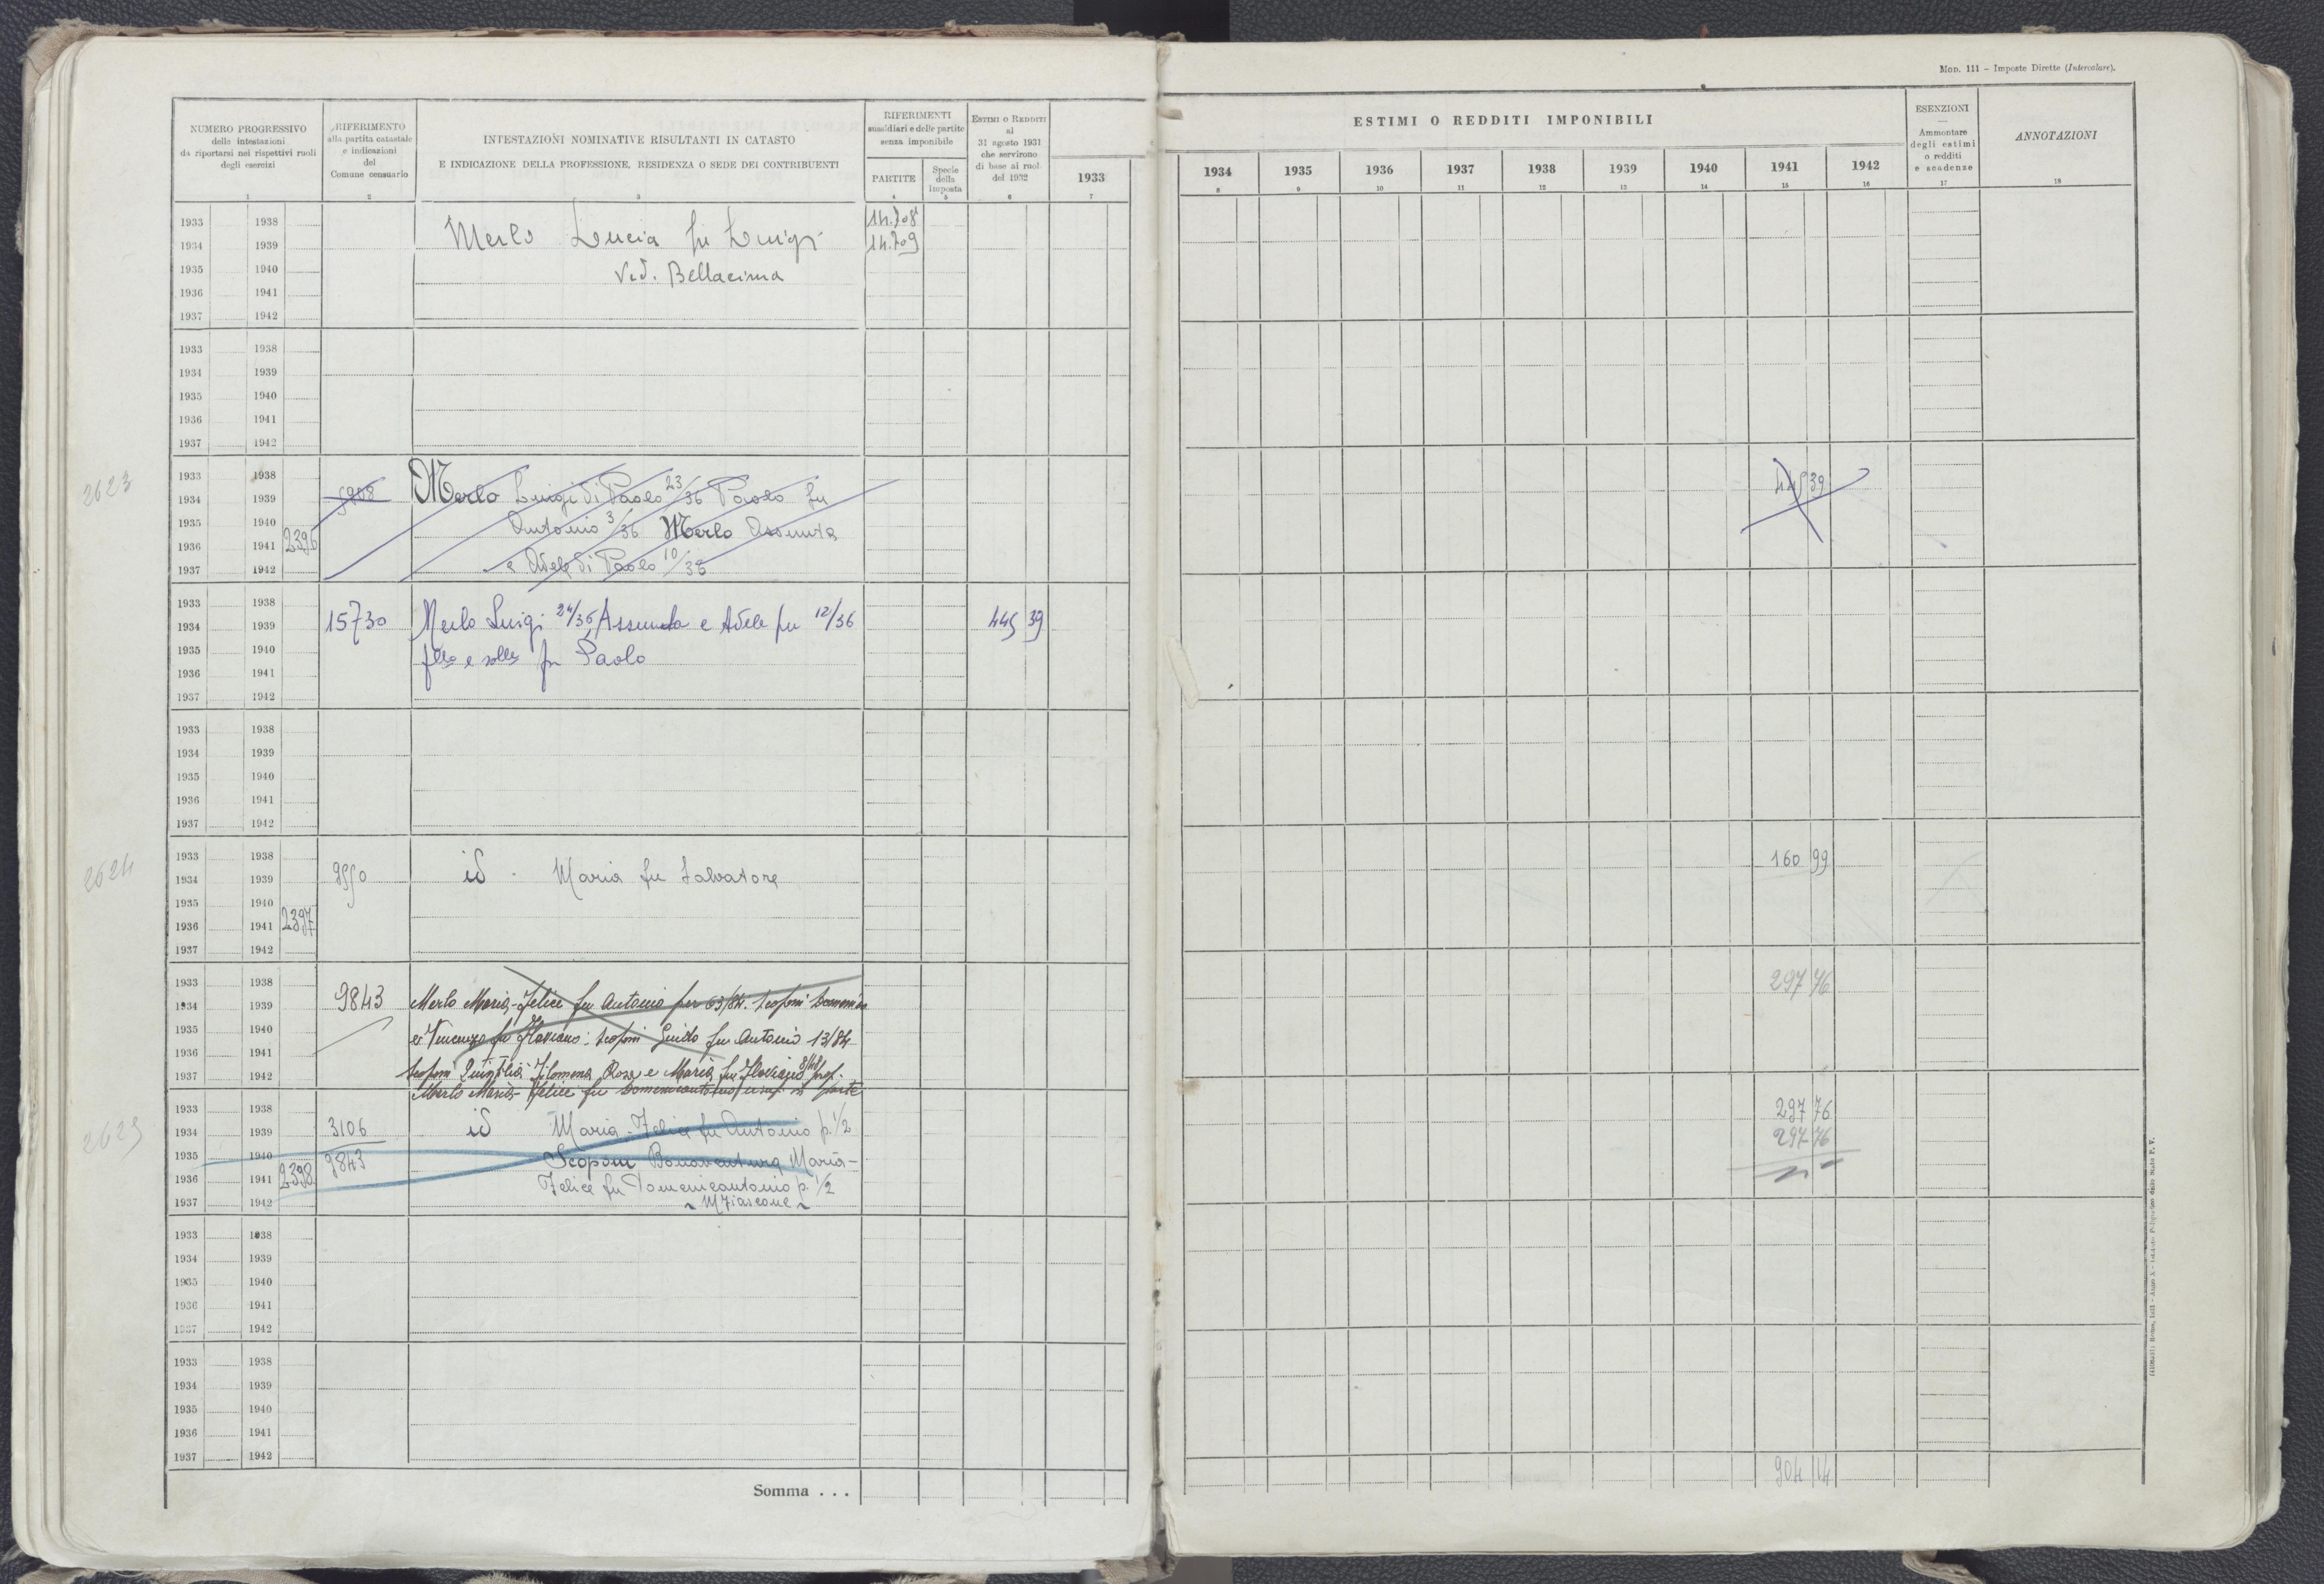 MOD. 111 – Imposte Dirette (Intercalare).
NUMERO PROGRESSIVO
delle intestazioni
da riportarsi nei rispettivi ruoli
degli esercizi
1
RIFERIMENTO
alla partita catastale
e indicazioni
del
Comune censuario
2
INTESTAZIONI NOMINATIVE RISULTANTI IN CATASTO
E INDICAZIONE DELLA PROFESSIONE, RESIDENZA O SEDE DEI CONTRIBUENTI
3
RIFERIMENTI
sussidiari e delle partite
senza imponibile
PARTITE
4
Specie
della
imposta
5
ESTIMI O REDDITI
al
31 agosto 1931
che servirono
di base ai ruol.
del 1932
6
1933
7
ESTIMI O REDDITI IMPONIBILI
1934 1935 1936 1937 1938 1939 1940 1941 1942
8 9 10 11 12 13 14 15 16
ESENZIONI
—
Ammontare
degli estimi
o redditi
e scadenze
17
ANNOTAZIONI
18
1933 1938 14.708
1934 1939 Merlo Lucia fu Luigi 14.709
1935 1940 Ved. Bellacima
1936 1941
1937 1942
1933 1938
1934 1939
1935 1940
1936 1941
1937 1942
2623
1933 1938
1934 1939 Merlo Luigi di Paolo 23/36 Paolo fu 445 39
1935 1940 Antonio 3/36 Merlo Assunta
1936 1941 2396
1937 1942 e Adele di Paolo 10/36
1933 1938
1934 1939 15730 Merlo Luigi 24/36 Assunta e Adele per 12/36 445 39
1935 1940 fllo e solle fu Paolo
1936 1941
1937 1942
1933 1938
1934 1939
1935 1940
1936 1941
1937 1942
2624
1933 1938 160 99
1934 1939 9550 id. Maria fu Salvatore
1935 1940
1936 1941 2397
1937 1942
1933 1938 297 76
1934 1939 9843 Merlo Maria-Felice fu Antonio per 63/84. Scoponi Domenico
1935 1940 e Vincenzo fu Flaviano; Scoponi Guido fu Antonio 13/84
1936 1941
1937 1942 Scoponi Quintilia Filomena Rosa e Maria fu Flaviano 8/48 prop.
Merlo Maria-Felice fu Domenicantonio usuf. in parte
2625
1933 1938 297 76
1934 1939 3106 id Maria-Felice fu Antonio p. 1/2 297 76
1935 1940 9843 Scoponi Bonaventura Maria-
1936 1941 2398 Felice fu Domenicantonio p. 1/2
1937 1942
1933 1938
1934 1939
1935 1940
1936 1941
1937 1942
1933 1938
1934 1939
1935 1940
1936 1941
1937 1942
Somma . . . 904 14